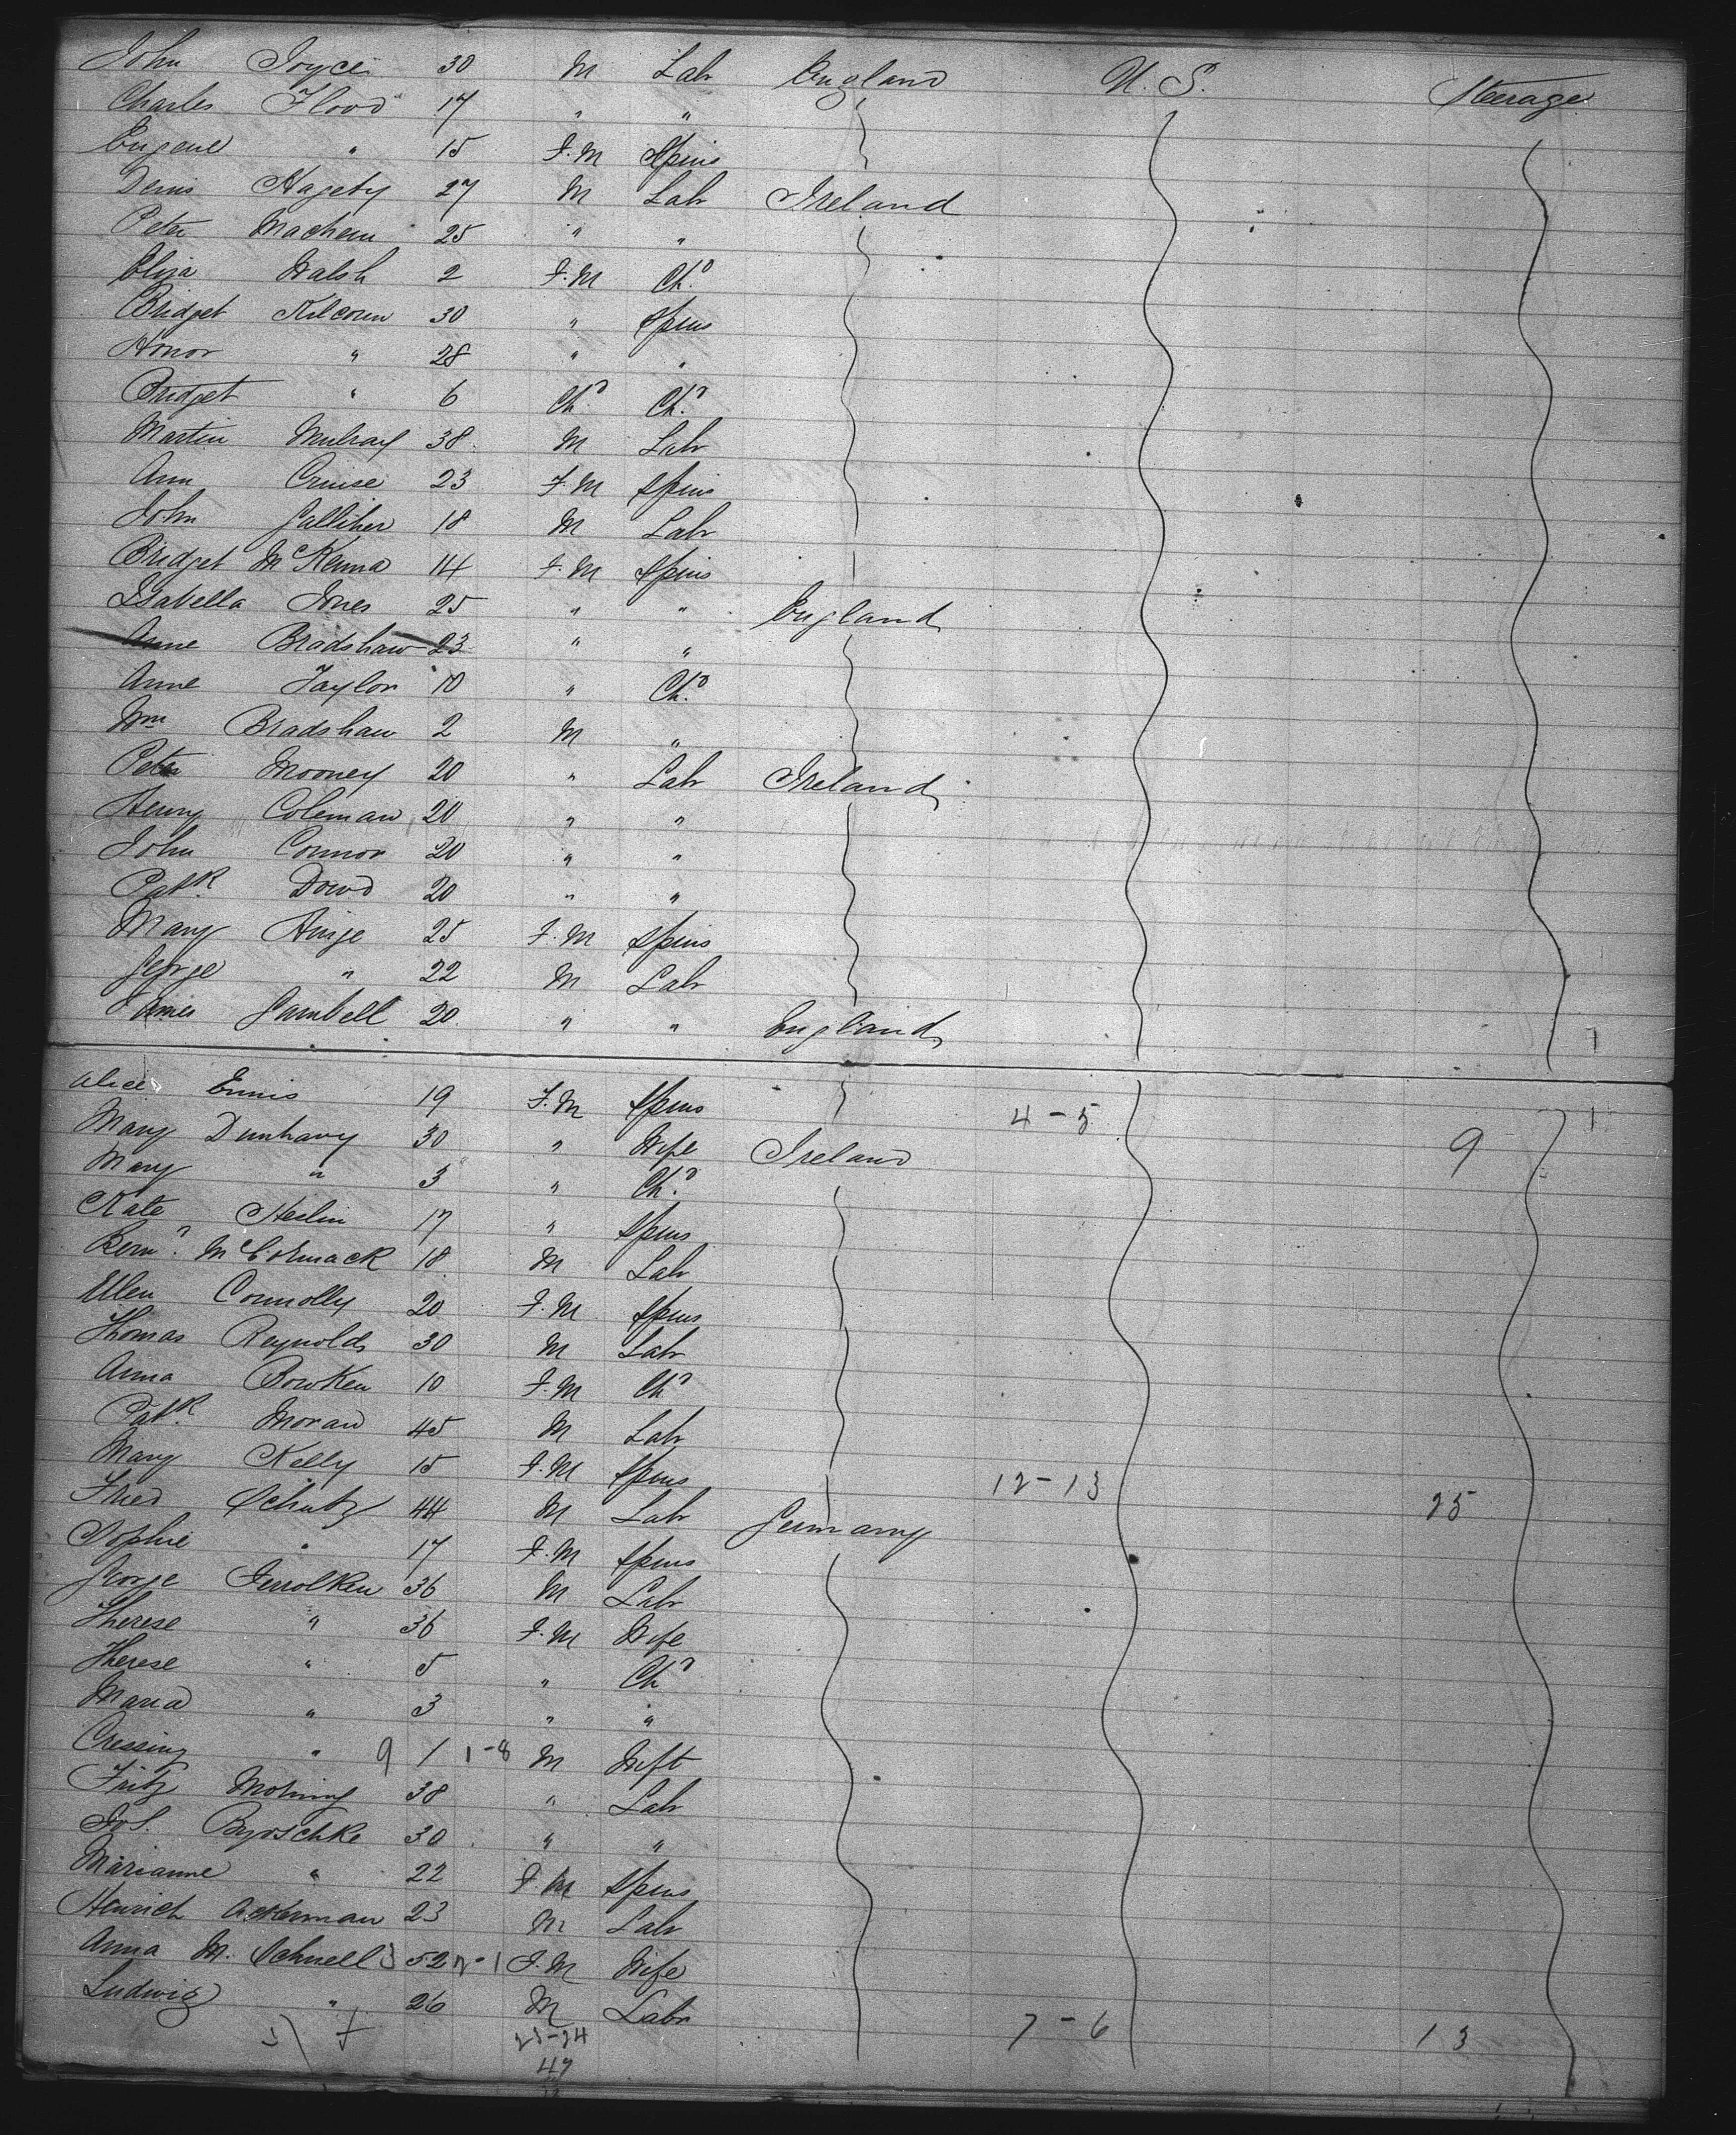 John Joyce 30 M Labr England U. S. Steerage
Charles Flood 17 " "
Eugene " 15 F.M Spins
Denis Hagety 27 M Labr Ireland
Peter Machem 25 " "
Eliza Walsh 2 F.M Chd
Bridget Kilcoun 30 " Spins
Honor " 28 " "
Bridget " 6 Chd Chd
Martin Mulray 38 M Labr
Ann Cruise 23 F.M Spins
John Galliher 18 M Labr
Bridget McKenna 14 F.M Spins
Isabella Jones 25 " " England
Anne Bradshaw 23 " "
Anne Taylor 10 " Chd
Wm Bradshaw 2 M "
Peter Mooney 20 " Labr Ireland
Henry Coleman 20 " "
John Connor 20 " "
Patk Dowd 20 " "
Mary Hinge 25 F.M Spins
George " 22 M Labr
James Gambell 20 " " England
Alice Ennis 19 F.M Spins 4-5
Mary Dunhavy 30 " Wife Ireland 9
Mary " 3 " Chd
Kate Heslin 17 " Spins
Bernd McCormack 18 M Labr
Ellen Connolly 20 F.M Spins
Thomas Reynolds 30 M Labr
Anna Bowken 10 F.M Chd
Patk Moran 45 M Labr
Mary Kelly 15 F.M Spins 12-13
Fried Schutz 44 M Labr Germany 25
Sophie " 17 F.M Spins
George 36 M Labr
Therese " 36 F.M Wife
Therese " 5 " Chd
Maria " 3 " "
Cressing " 9 1 1-8 M Inft
Fritz Mohring 38 " Labr
Jos. Byoschke 30 " "
Marianne " 22 F.M Spins
Henrich Ackerman 23 M Labr
Anna M. Schnell 52 F.M Wife
Ludwig " 26 M Labr 7-6 13
23-24
47